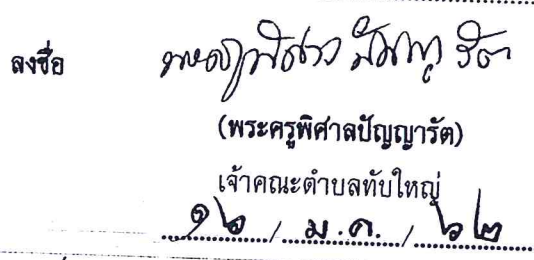 ลงชื่อ พระครูพิศาล ปัญญารัต
(พระครูพิศาลปัญญารัต)
เจ้าคณะตำบลทับใหญ่
๑๖ / ม.ค. / ๖๒